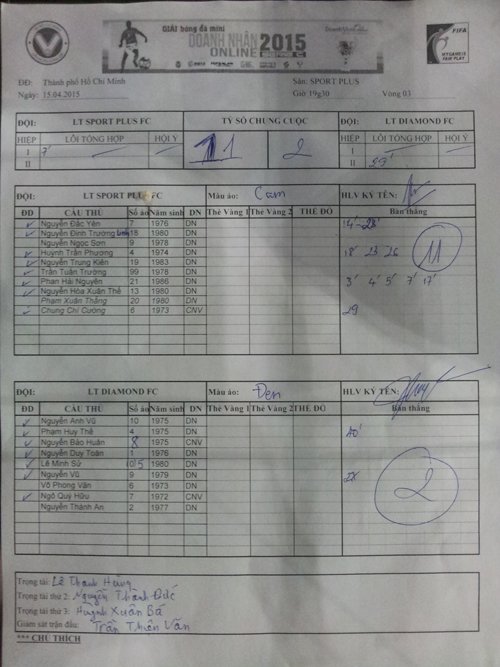 GIẢI bóng đá mini
DOANH NHÂN 2015
ONLINE
FIFA
MY GAME IS
FAIR PLAY
ĐĐ: Thành phố Hồ Chí Minh Sân: SPORT PLUS
Ngày: 15.04.2015 Giờ 19g30 Vòng 03
ĐỘI: LT SPORT PLUS FC TỶ SỐ CHUNG CUỘC ĐỘI: LT DIAMOND FC
HIỆP LỖI TỔNG HỢP HỘI Ý 11 2 HIỆP LỖI TỔNG HỢP HỘI Ý
I 7' I
II II
ĐỘI: LT SPORT PLUS FC Màu áo: Cam HLV KÝ TÊN:
ĐD CẦU THỦ Số áo Năm sinh DN Thẻ Vàng 1 Thẻ Vàng 2 THẺ ĐỎ Bàn thắng
Nguyễn Đắc Yên 7 1976 DN 14' 28'
Nguyễn Đình Trường 18 1980 DN
Nguyễn Ngọc Sơn 9 1978 DN 11
Huỳnh Trần Phương 4 1974 DN 18' 23 26
Nguyễn Trung Kiên 19 1983 DN
Trần Tuấn Trường 99 1978 DN
Phan Hải Nguyên 21 1986 DN 3' 4' 5' 7' 17'
Nguyễn Hòa Xuân Thể 13 1980 DN
Phạm Xuân Thắng 20 1980 DN
Chung Chí Cường 6 1973 CNV 29
ĐỘI: LT DIAMOND FC Màu áo: Đen HLV KÝ TÊN:
ĐD CẦU THỦ Số áo Năm sinh DN Thẻ Vàng 1 Thẻ Vàng 2 THẺ ĐỎ Bàn thắng
Nguyễn Anh Vũ 10 1975 DN
Phạm Huy Thể 4 1975 DN
Nguyễn Bảo Huân 8 1975 CNV
Nguyễn Duy Toán 1 1976 DN
Lê Minh Sử 5 1980 DN
Nguyễn Vũ 9 1979 DN 2
Võ Phong Vân 6 1973 DN
Ngô Quý Hữu 7 1972 CNV
Nguyễn Thành An 2 1977 DN
Trọng tài: Lê Thanh Hùng
Trọng tài thứ 2: Nguyễn Thành Đức
Trọng tài thứ 3: Huỳnh Xuân Bá
Giám sát trận đấu: Trần Thiên Văn
*** CHÚ THÍCH